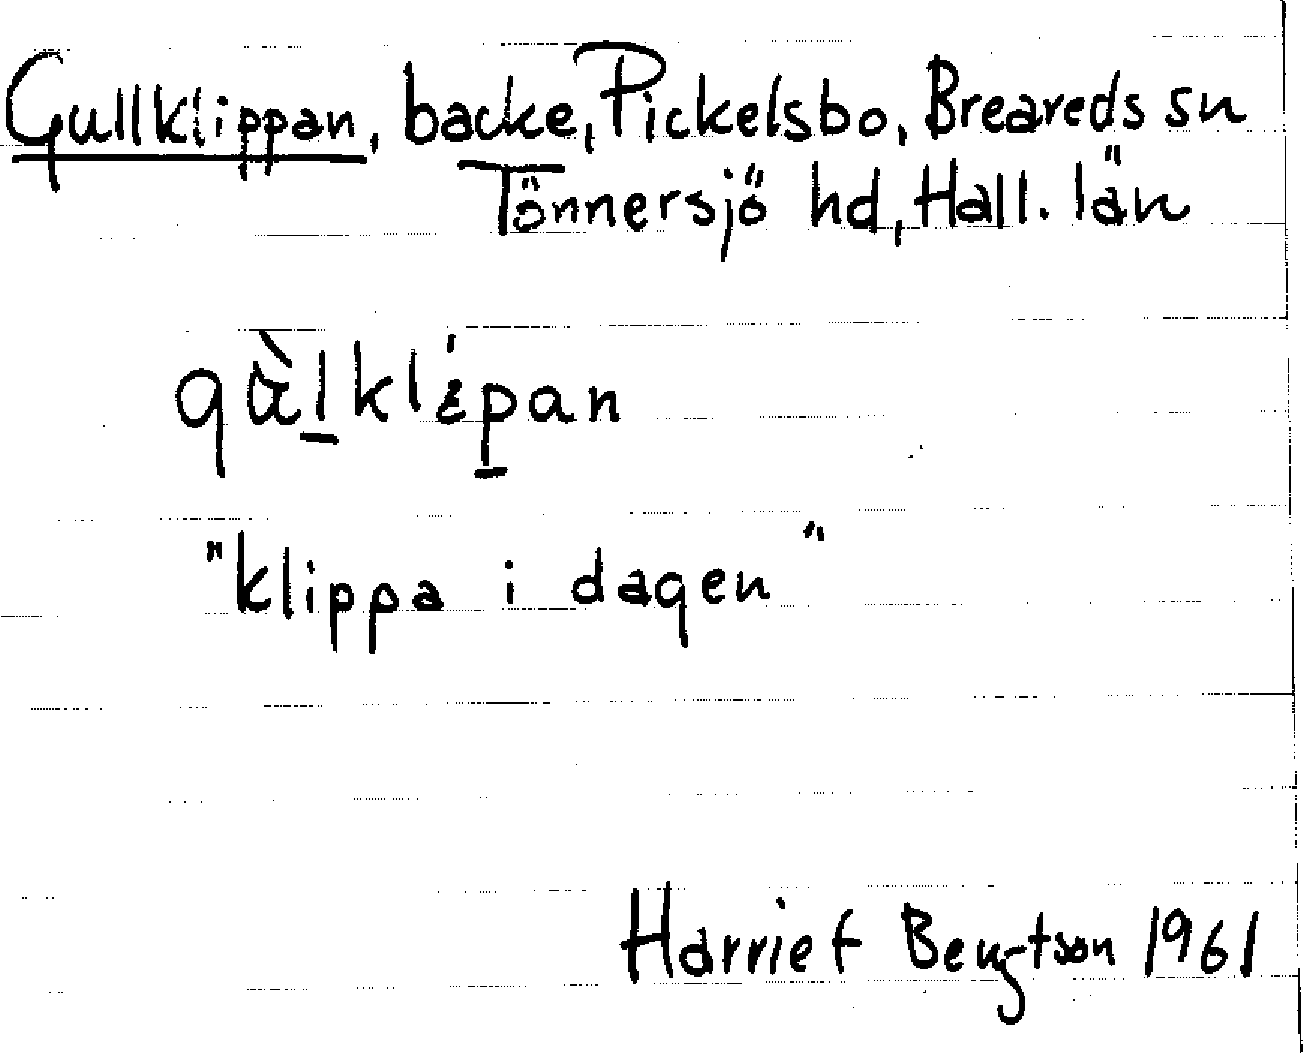 Gullklippan, backe, Pickelsbo, Breareds sn
Tönnersjö hd, Hall. län
"klippa i dagen"
Harriet Bengtson 1961